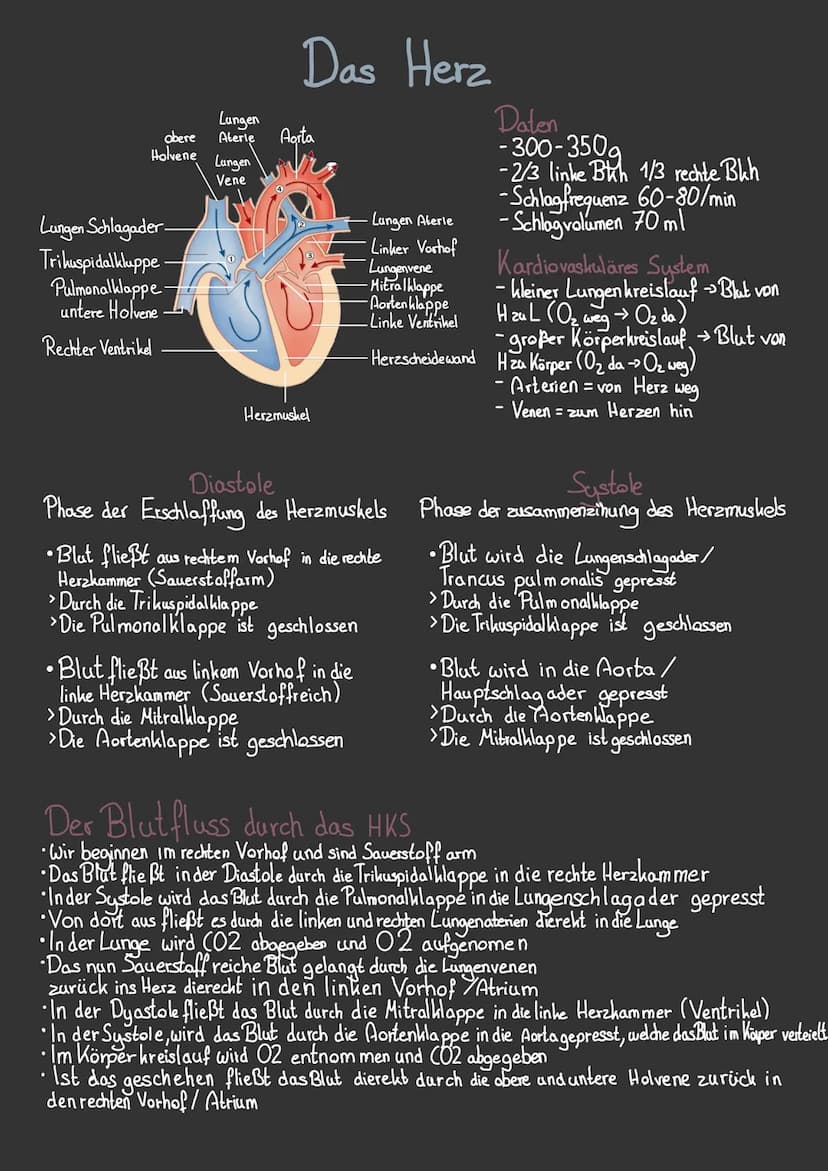 Das Herz
Lungen
Aterie
obere
Holvene
Aorta
Lungen
Vene
Lungen Schlagader
Trikuspidalkluppe
Pulmonalklappe
untere Holvene
Rechter Ventrikel
Lungen Aterie
Linker Vorhof
Lungenvene
Mitralklappe
Aortenklappe
Linke Ventrikel
Herzscheidewand
Herzmuskel
1
2
3
4
Daten
- 300-350g
- 2/3 linke Bkh 1/3 rechte Bkh
- Schlagfrequenz 60-80/min
- Schlagvolumen 70 ml
Kardiovaskuläres System
- kleiner Lungenkreislauf → Blut von
H zu L (O2 weg → O2 da)
- großer Körperkreislauf → Blut von
H zu Körper (O2 da → O2 weg)
- Arterien = von Herz weg
- Venen = zum Herzen hin
Diastole
Phase der Erschlaffung des Herzmuskels
• Blut fließt aus rechtem Vorhof in die rechte
Herzkammer (Sauerstoffarm)
> Durch die Trikuspidalklappe
> Die Pulmonalklappe ist geschlossen
• Blut fließt aus linkem Vorhof in die
linke Herzkammer (Sauerstoffreich)
> Durch die Mitralklappe
> Die Aortenklappe ist geschlossen
Systole
Phase der zusammenzihung des Herzmuskels
• Blut wird die Lungenschlagader/
Trancus pulmonalis gepresst
> Durch die Pulmonalklappe
> Die Trikuspidalklappe ist geschlossen
• Blut wird in die Aorta /
Hauptschlagader gepresst
> Durch die Aortenklappe
> Die Mitralklappe ist geschlossen
Der Blutfluss durch das HKS
• Wir beginnen im rechten Vorhof und sind Sauerstoff arm
• Das Blut fließt in der Diastole durch die Trikuspidalklappe in die rechte Herzkammer
• In der Systole wird das Blut durch die Pulmonalklappe in die Lungenschlagader gepresst
• Von dort aus fließt es durch die linken und rechten Lungenaterien dierekt in die Lunge
• In der Lunge wird CO2 abgegeben und O2 aufgenomen
• Das nun Sauerstoff reiche Blut gelangt durch die Lungenvenen
zurück ins Herz dierekt in den linken Vorhof / Atrium
• In der Dyastole fließt das Blut durch die Mitralklappe in die linke Herzkammer (Ventrikel)
• In der Systole, wird das Blut durch die Aortenklappe in die Aorta gepresst, welche das Blut im Köper verteielt
• Im Körperkreislauf wird O2 entnommen und CO2 abgegeben
• Ist das geschehen fließt das Blut dierekt durch die obere und untere Holvene zurück in
den rechten Vorhof / Atrium